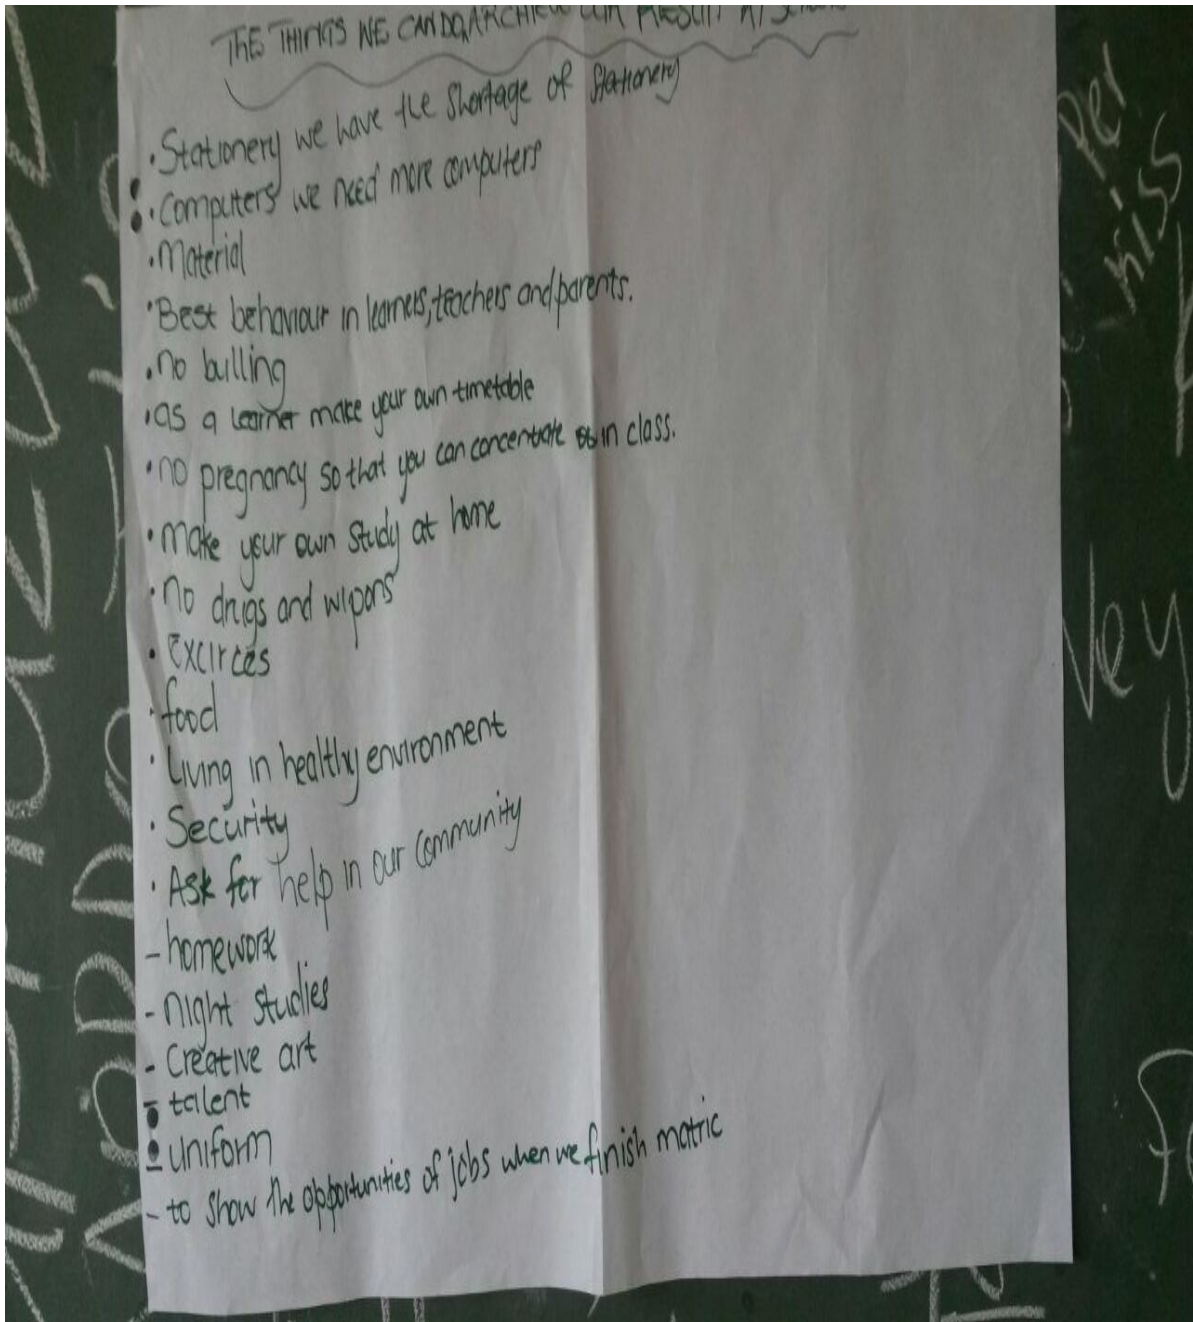 THE THINGS WE CAN DO, ARCHIEV OUR RESULT AT SCHOOL
. Stationery we have the shortage of stationery
. Computers we need more computers
. Material
. Best behaviour in learners, teachers and parents.
. no bulling
. as a learner make your own timetable
. no pregnancy so that you can concentrate in class.
. make your own study at home
. no drugs and wipons
. Excirces
. food
. Living in healthy environment
. Security
. Ask for help in our community
- homework
- night studies
- Creative art
- talent
- uniform
- to show the opportunities of jobs when we finish matric
Per
miss
Ney